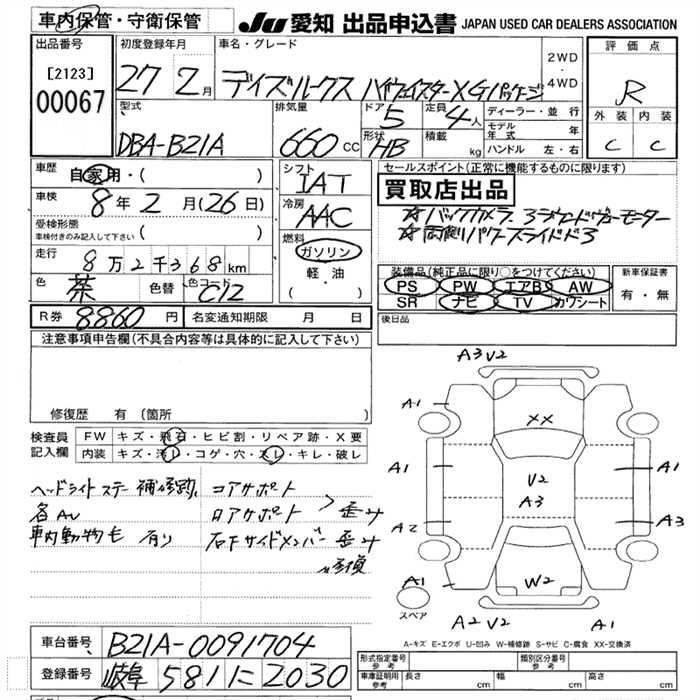 車内保管・守衛保管
JU 愛知 出品申込書 JAPAN USED CAR DEALERS ASSOCIATION
出品番号
[2123]
00067
初度登録年月
27 2月
車名・グレード
デイズルークス ハイウェイスターXGパッケージ
2WD
・
4WD
評価点
R
型式
DBA-B21A
排気量
660 CC
ドア
5
定員
4人
ディーラー・並行
形状
HB
積載
kg
モデル年式 年
ハンドル 左・右
外装 内装
C C
車歴
自家用・( )
車検
8年2月(26日)
受検形態
車検付きのみ記入して下さい ( )
走行
8万2千368km
色
茶
色替
色コード
C12
シフト
IAT
冷房
AAC
燃料
ガソリン
軽・油
( )
セールスポイント(正常に機能するものに限ります)
買取店出品
☆バックカメラ
☆両側パワースライドドア
装備品(純正品に限り○をつけてください)
PS PW エアB AW
SR ナビ TV カワシート
新車保証書
有・無
後日品
R券 8860円 名変通知期限 月 日
注意事項申告欄(不具合内容等は具体的に記入して下さい)
修復歴 有(箇所
検査員記入欄
FW キズ・飛石・ヒビ割・リペア跡・X要
内装 キズ・汚レ・コゲ・穴・スレ・キレ・破レ
ヘッドライトステー補修跡、コアサポート
各AW ロアサポート 歪み
車内動物毛 有り 右下サイドメンバー歪み
〃修復
A3 V2
A1
XX
A1
V2
A1
A3
A2
A3
A1
W2
スペア
A2 V2
A1
A-キズ E-エクボ U-凹み W-補修跡 S-サビ C-腐食 XX-交換済
車台番号 B21A-0091704
登録番号 岐阜 581 に 2030
形式指定番号 参考
類別区分番号 参考
車庫証明用 参考 長さ cm 幅 cm 高さ cm